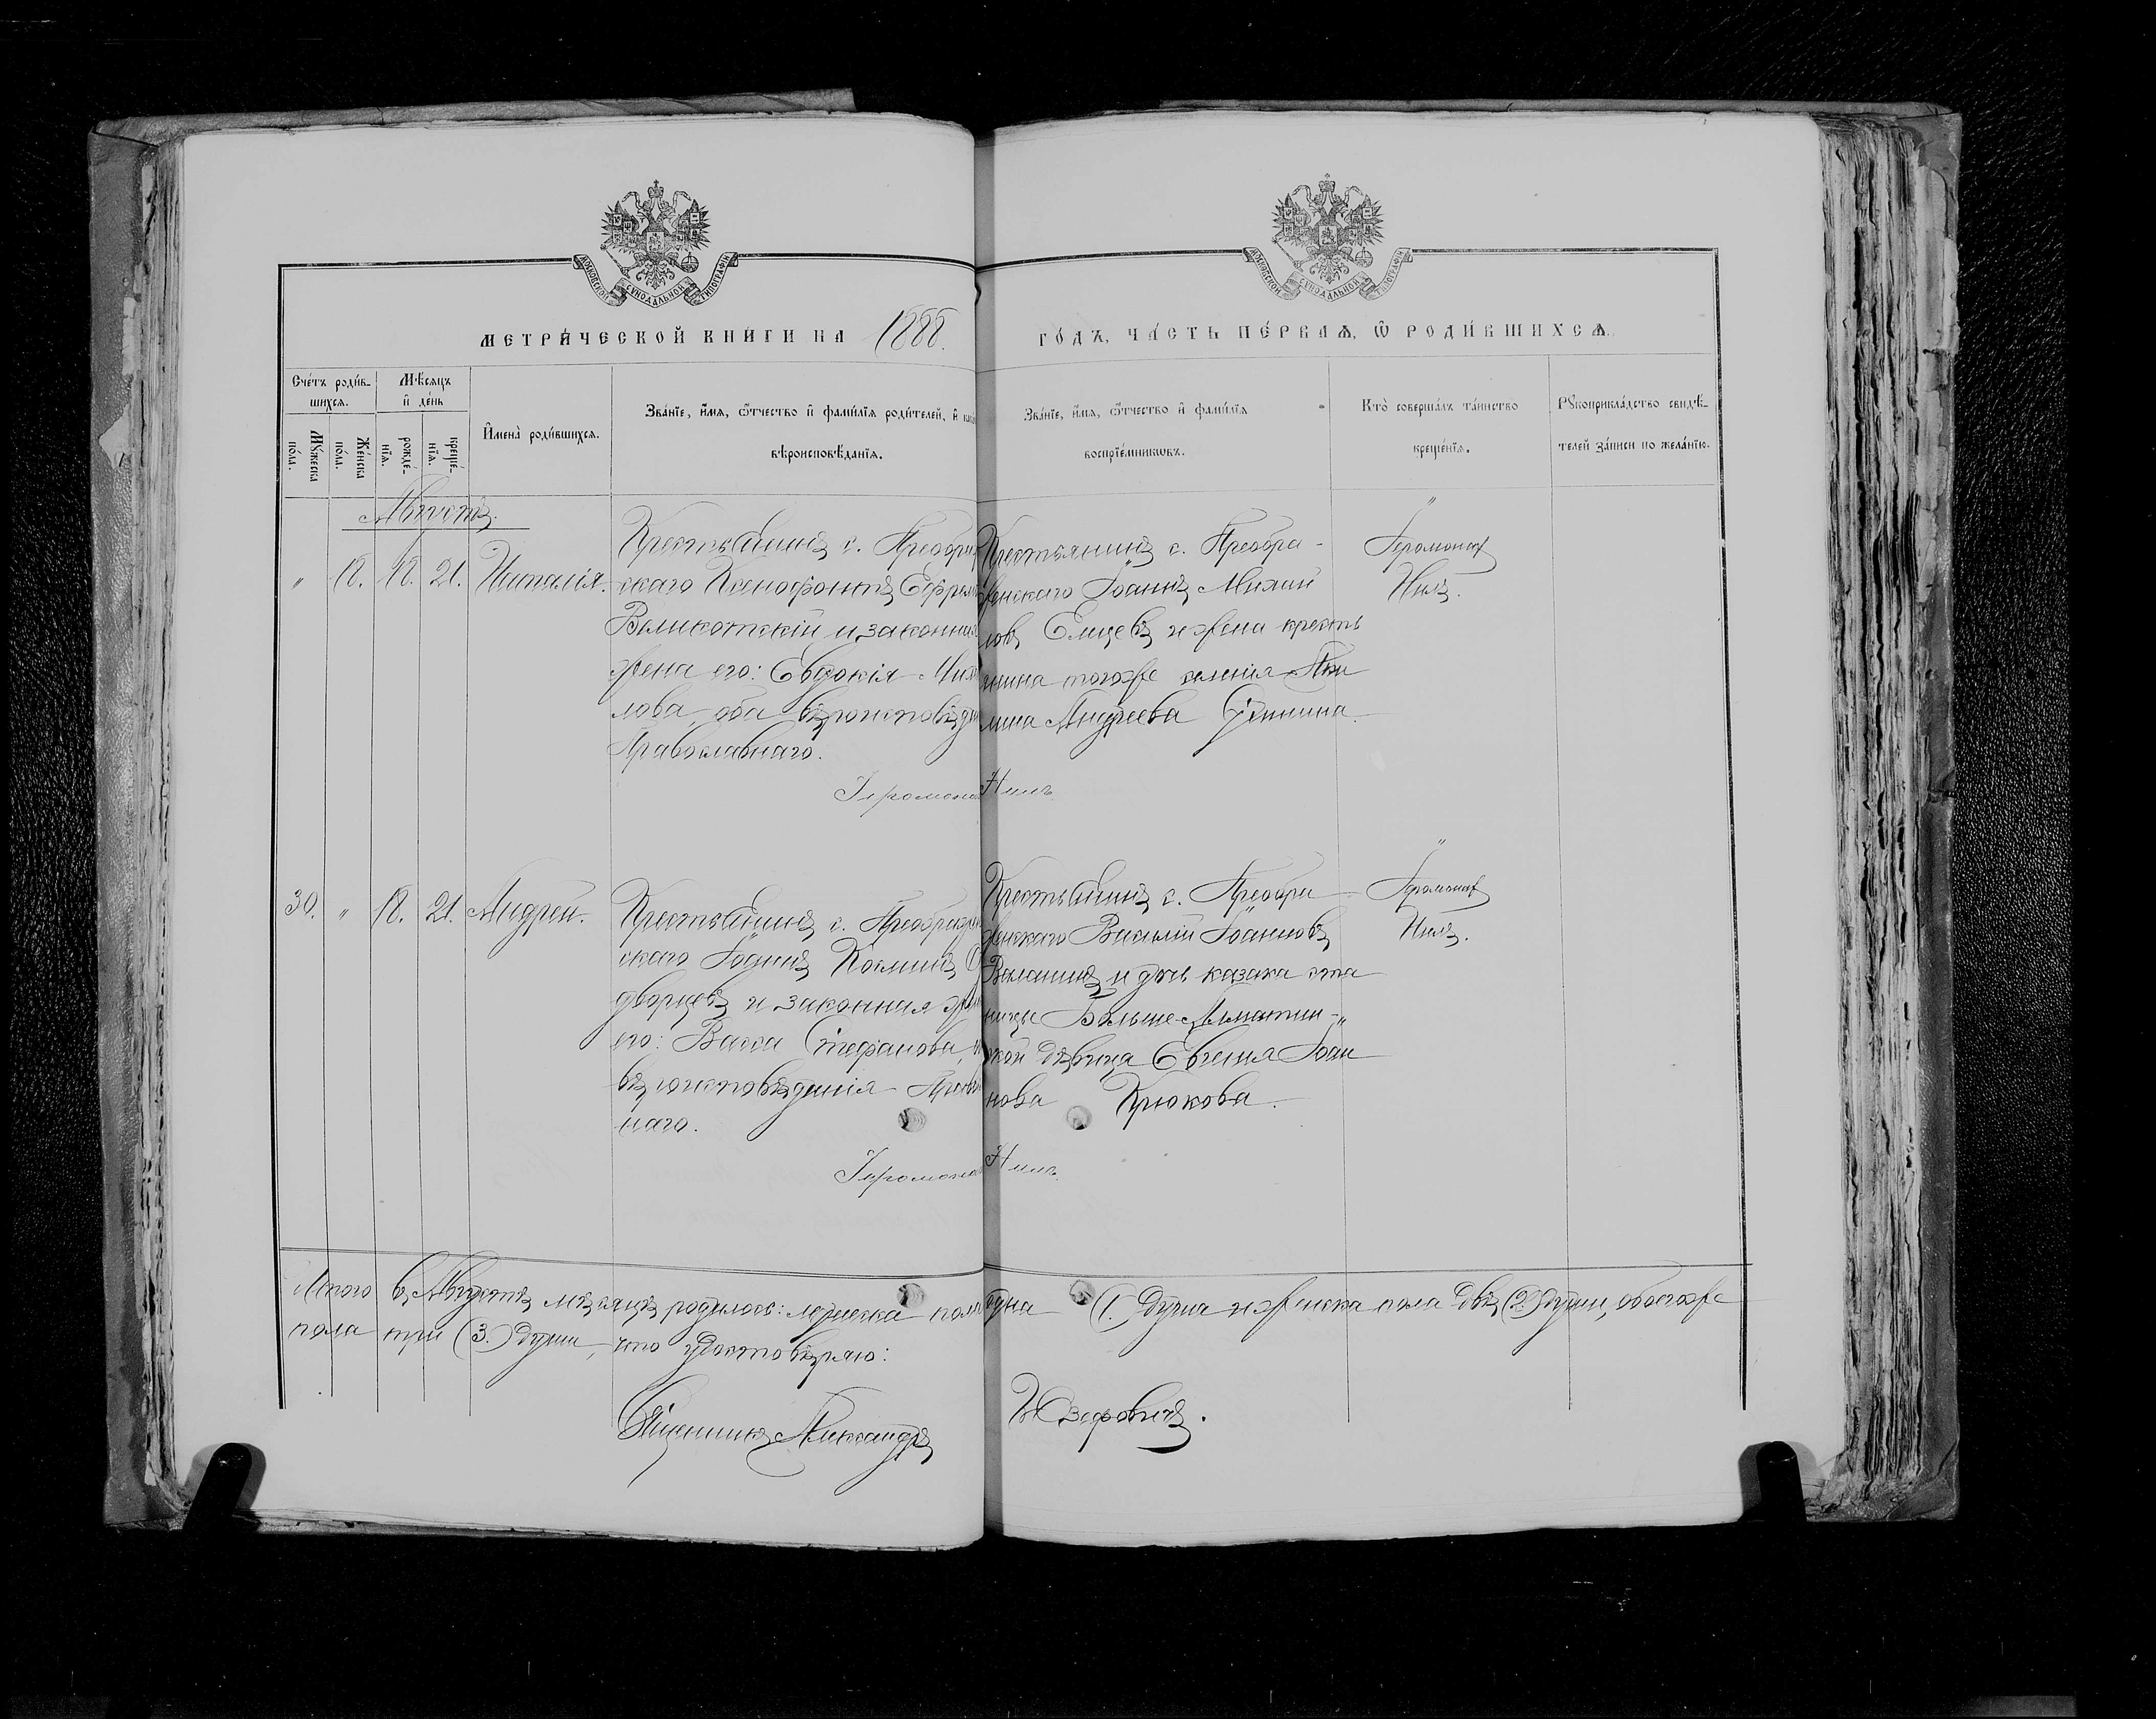 МОСКОВСКОЙ СѴНОДАЛЬНОЙ ТИПОГРАФІИ
МОСКОВСКОЙ СѴНОДАЛЬНОЙ ТИПОГРАФІИ
МЕТРИ́ЧЕСКОЙ КНИ́ГИ НА 1888.
ГО́ДЪ, ЧА́СТЬ ПЕ́РВАѦ, Ѡ РОДИ́ВШИХСѦ.
Сче́тъ роди́в-
шихсѧ.
Мѣ́сѧцъ
и҆ де́нь
Мꙋ́жеска
по́ла.
Же́нска
по́ла.
рожде́-
нїѧ.
креще́-
нїѧ.
И҆мена̀ роди́вшихсѧ.
Зва́нїе, и҆́мѧ, ѻ҆́тчество и҆ фами́лїѧ роди́телей, и҆
вѣроисповѣ́данїѧ.
Зва́нїе, и҆́мѧ, ѻ҆́тчество и҆ фами́лїѧ
воспрїе́мникѡвъ.
Кто̀ соверша́лъ та́инство
креще́нїѧ.
Рꙋкоприкла́дство свидѣ́-
телей за́писи по жела́нїю.
Августъ.
" 18. 18. 21. Наталія.
Крестьянинъ с. Преобра
скаго Ксенофонтъ Ефрем
Великотскій и законная
жена его: Евдокія Миха
лова, оба вѣроисповѣда
Православнаго.
Крестьянинъ с. Преобра-
женскаго Іоаннъ Михаи
ловъ Елцевъ и жена кресть
янина тогоже селенія
Андреева
Іеромонах
Нилъ.
Іеромона Нилъ
30. " 18. 21. Андрей.
Крестьянинъ с. Преображен
скаго Іоаннъ Косминъ О
дворцевъ и законная жена
его: Васса Стефанова,
вѣроисповѣданія Правосл
наго.
Крестьянинъ с. Преобра
женскаго Василій Іоанновъ
Веланинъ и дочь казака ста
ницы Больше-Алматин-
ской дѣвица Евгенія Іоан
нова Крюкова.
Іеромонах
Нилъ.
Іеромона Нилъ
Итого въ Августѣ мѣсяцѣ родилось: мужеска пола одна (1.) душа и женска пола двѣ (2.) души, обоегоже
пола три (3.) души, что удостовѣряю:
Священникъ Александръ Юзефовичъ.